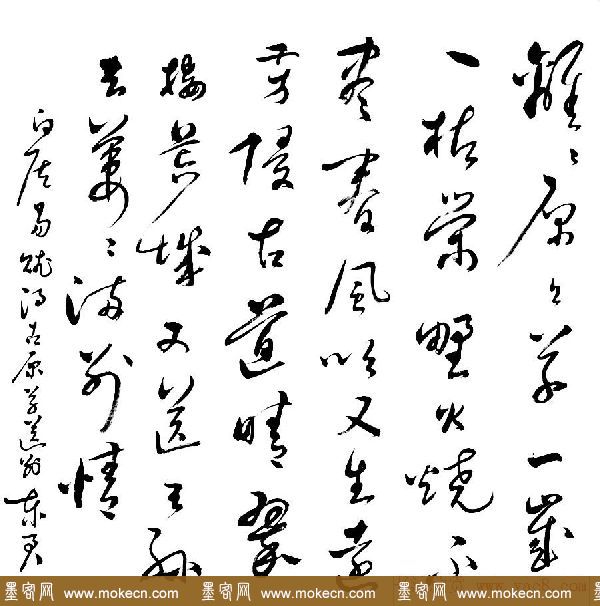 離〻原上草一歲
一枯榮野火燒不
盡春風吹又生遠
芳侵古道晴翠
接荒城又送王孫
去萋〻滿別情
白居易賦得古原草送別
墨客网 www.mokecn.com 墨客网 www.mokecn.com 墨客网 www.mokecn.com